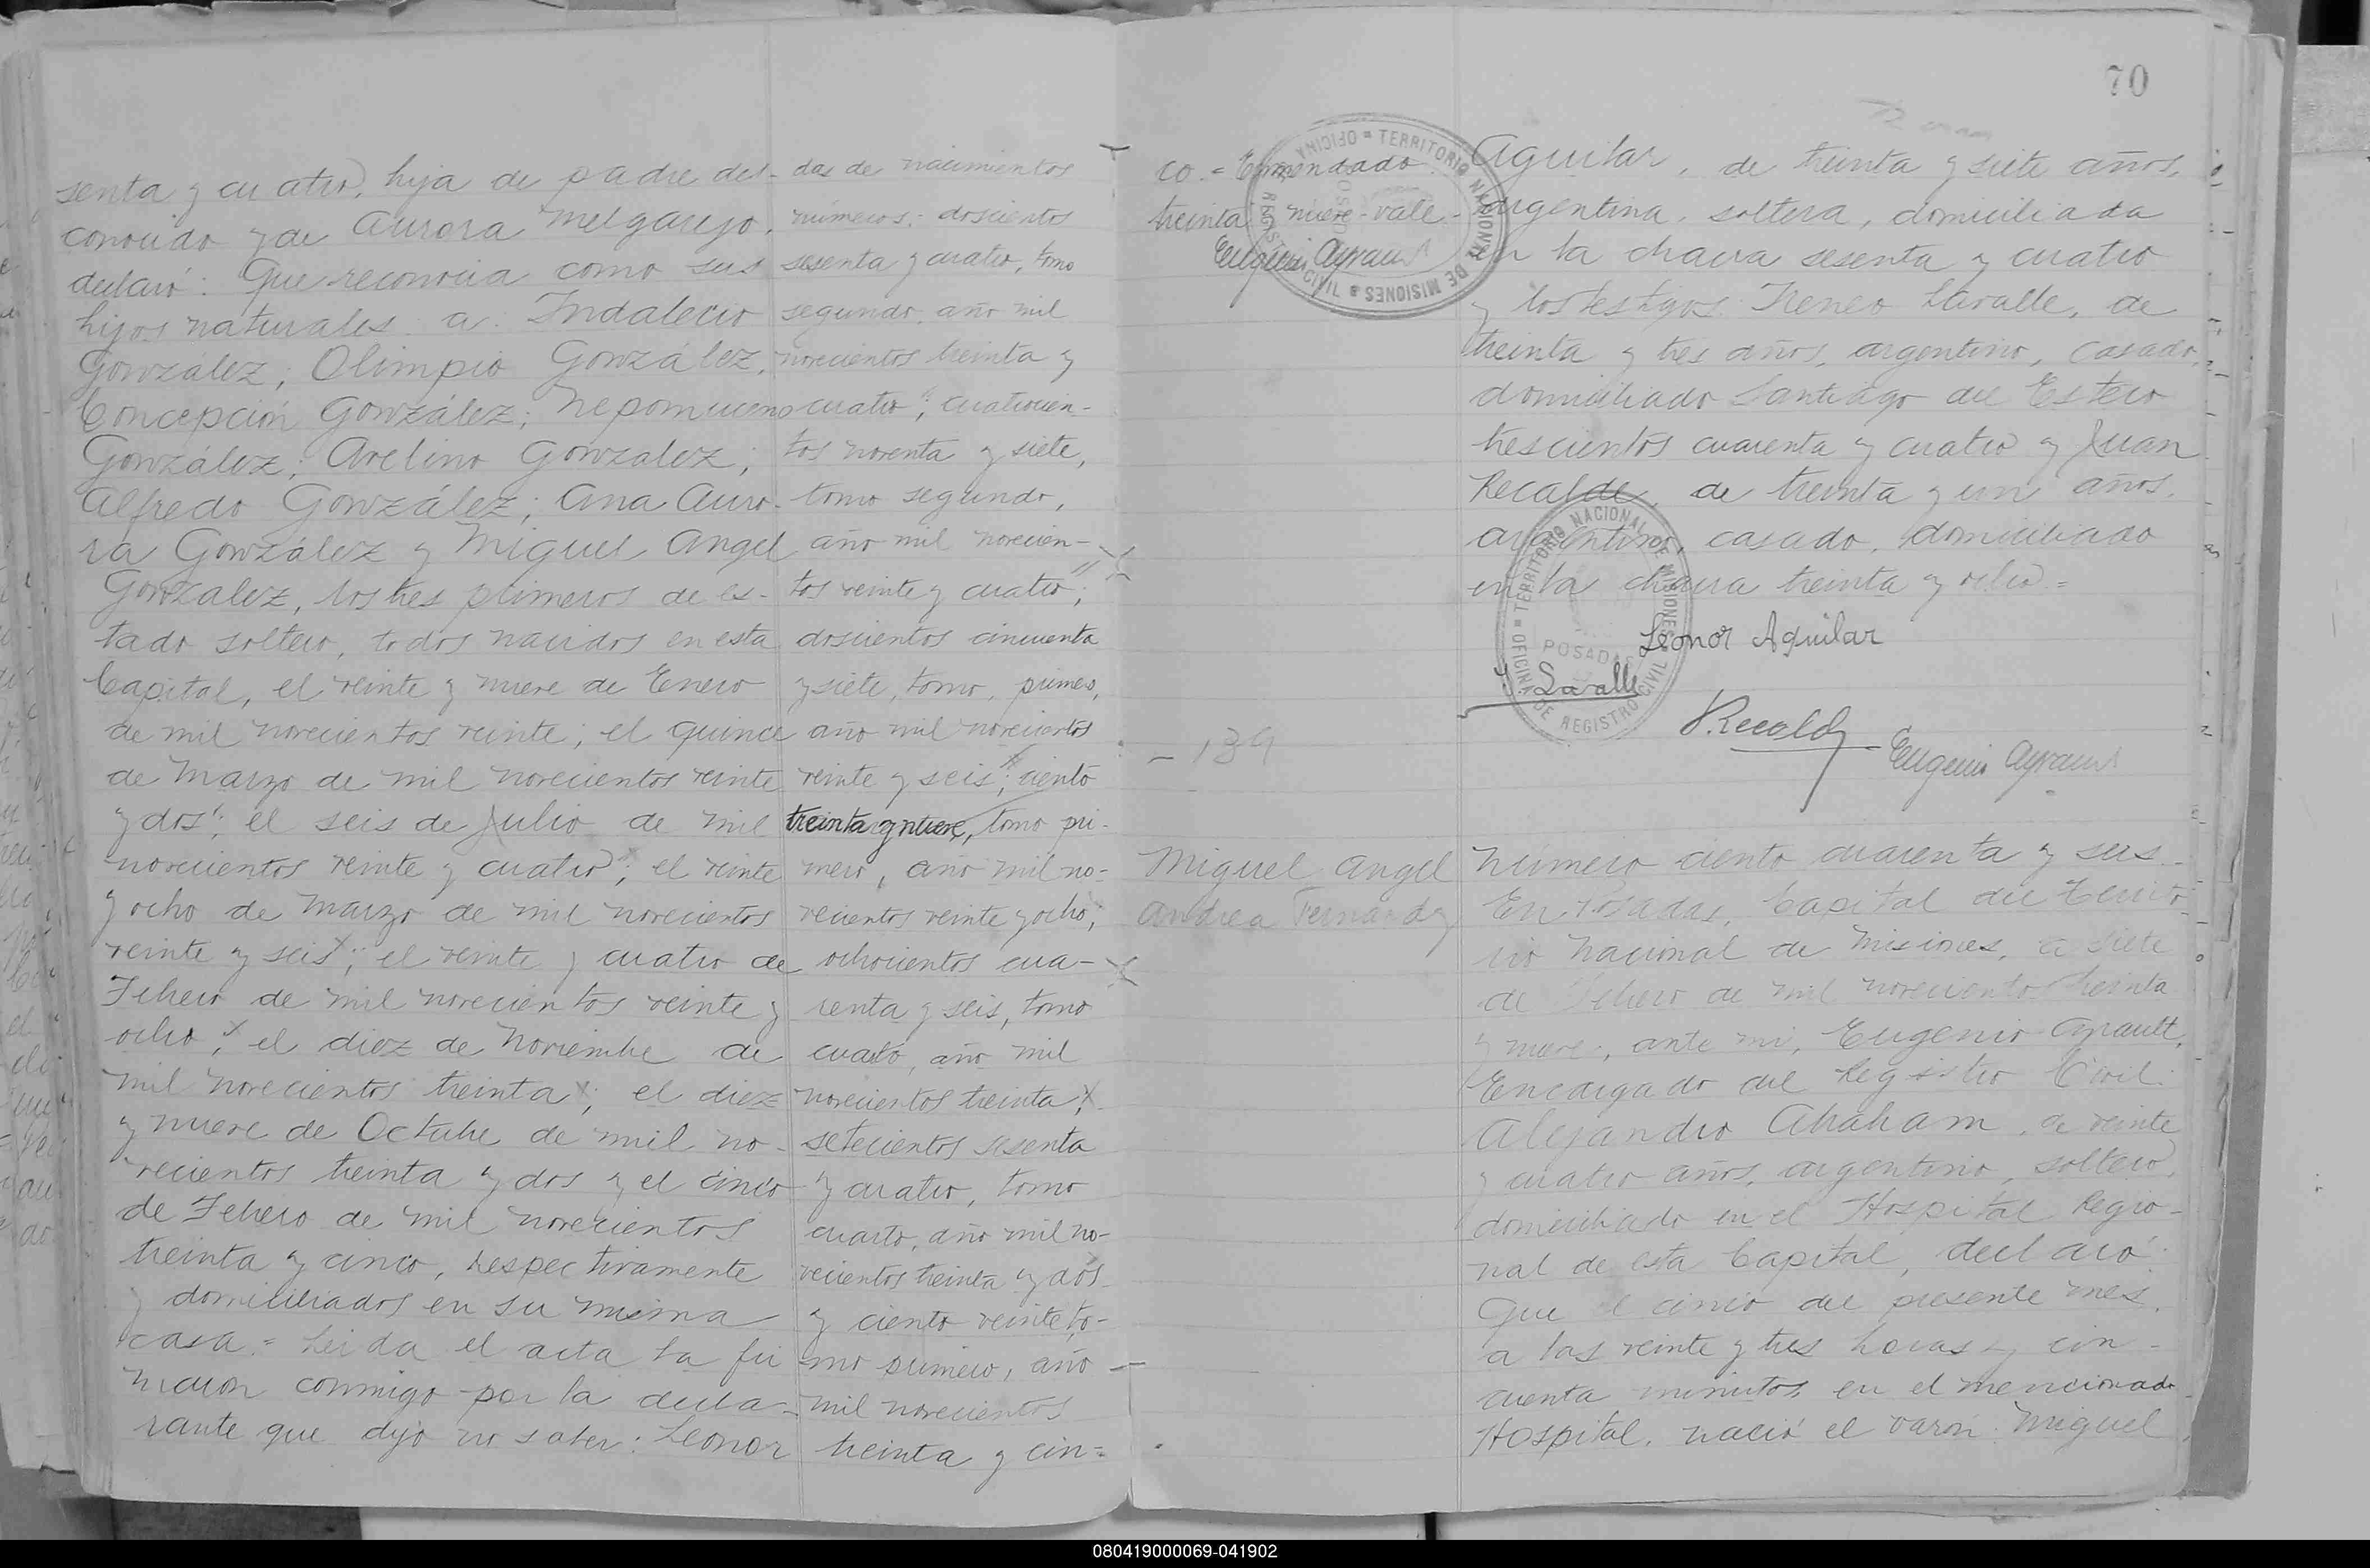 senta y cuatro, hija de padre des-
conocido y de Aurora Melgarejo,
declaró: Que reconocia como sus
hijos naturales a: Indalecio
González; Olimpio González,
Concepción González; Nepomuceno
González; Avelino Gonzalez;
Alfredo González; Ana Auro-
ra González y Miguel Angel
Gonzalez, los tres primeros de es-
tado soltero, todos nacidos en esta
Capital, el veinte y nueve de Enero
de mil novecientos veinte; el quince
de Marzo de mil novecientos veinte
y dos; el seis de Julio de mil
novecientos veinte y cuatro; el veinte
y ocho de Marzo de mil novecientos
veinte y seis; el veinte y cuatro de
Febrero de mil novecientos veinte y
ocho; el diez de Noviembre de
mil novecientos treinta; el diez
y nueve de Octubre de mil no-
vecientos treinta y dos y el cinco
de Febrero de mil novecientos
treinta y cinco, respectivamente
y domiciliados en su misma
casa = Leida el acta la fir
maron conmigo por la decla-
rante que dijo no saber: Leonor
das de nacimientos
números: doscientos
sesenta y cuatro, tomo
segundo, año mil
novecientos treinta y
cuatro; cuatrocien-
tos noventa y siete,
tomo segundo,
año mil novecien-
tos veinte y cuatro;
doscientos cincuenta
y siete, tomo, primero,
año mil novecientos
veinte y seis; ciento
treinta y nueve, tomo pri-
mero, año mil no-
vecientos veinte y ocho;
ochocientos cua-
renta y seis, tomo
cuarto, año mil
novecientos treinta;
setecientos sesenta
y cuatro, tomo
cuarto, año mil no-
vecientos treinta y dos
y ciento veinte to-
mo primero, año
mil novecientos
treinta y cin=
70
co. = Enmendado:
treinta nueve-vale-
Eugenio Ayrault
OFICINA = TERRITORIO NACIONAL DE MISIONES = REGISTRO CIVIL
Aguilar, de treinta y siete años,
argentina, soltera, domiciliada
en la chacra sesenta y cuatro
y los testigos: Ireneo Lavalle, de
treinta y tres años, argentino, casado,
domiciliado Santiago del Estero
trescientos cuarenta y cuatro y Juan
Recalde, de treinta y un años,
argentino, casado, domiciliado
en la chacra treinta y ocho =
TERRITORIO NACIONAL DE MISIONES
POSADAS
OFICINA DE REGISTRO CIVIL
Leonor Aguilar
I. Lavalle
J. Recalde
Eugenio Ayrault
- 139
Miguel Angel
Andrea Fernandez
Número ciento cuarenta y seis.-
En Posadas, Capital del Territo-
rio Nacional de Misiones, a siete
de Febrero de mil novecientos treinta
y nueve, ante mi, Eugenio Ayrault,
Encargado del Registro Civil:
Alejandro Abraham, de veinte
y cuatro años, argentino, soltero,
domiciliado en el Hospital Regio-
nal de esta Capital, declaró:
Que el cinco del presente mes,
a las veinte y tres horas y cin-
cuenta minutos, en el mencionado
Hospital, nació el varón: Miguel
080419000069-041902